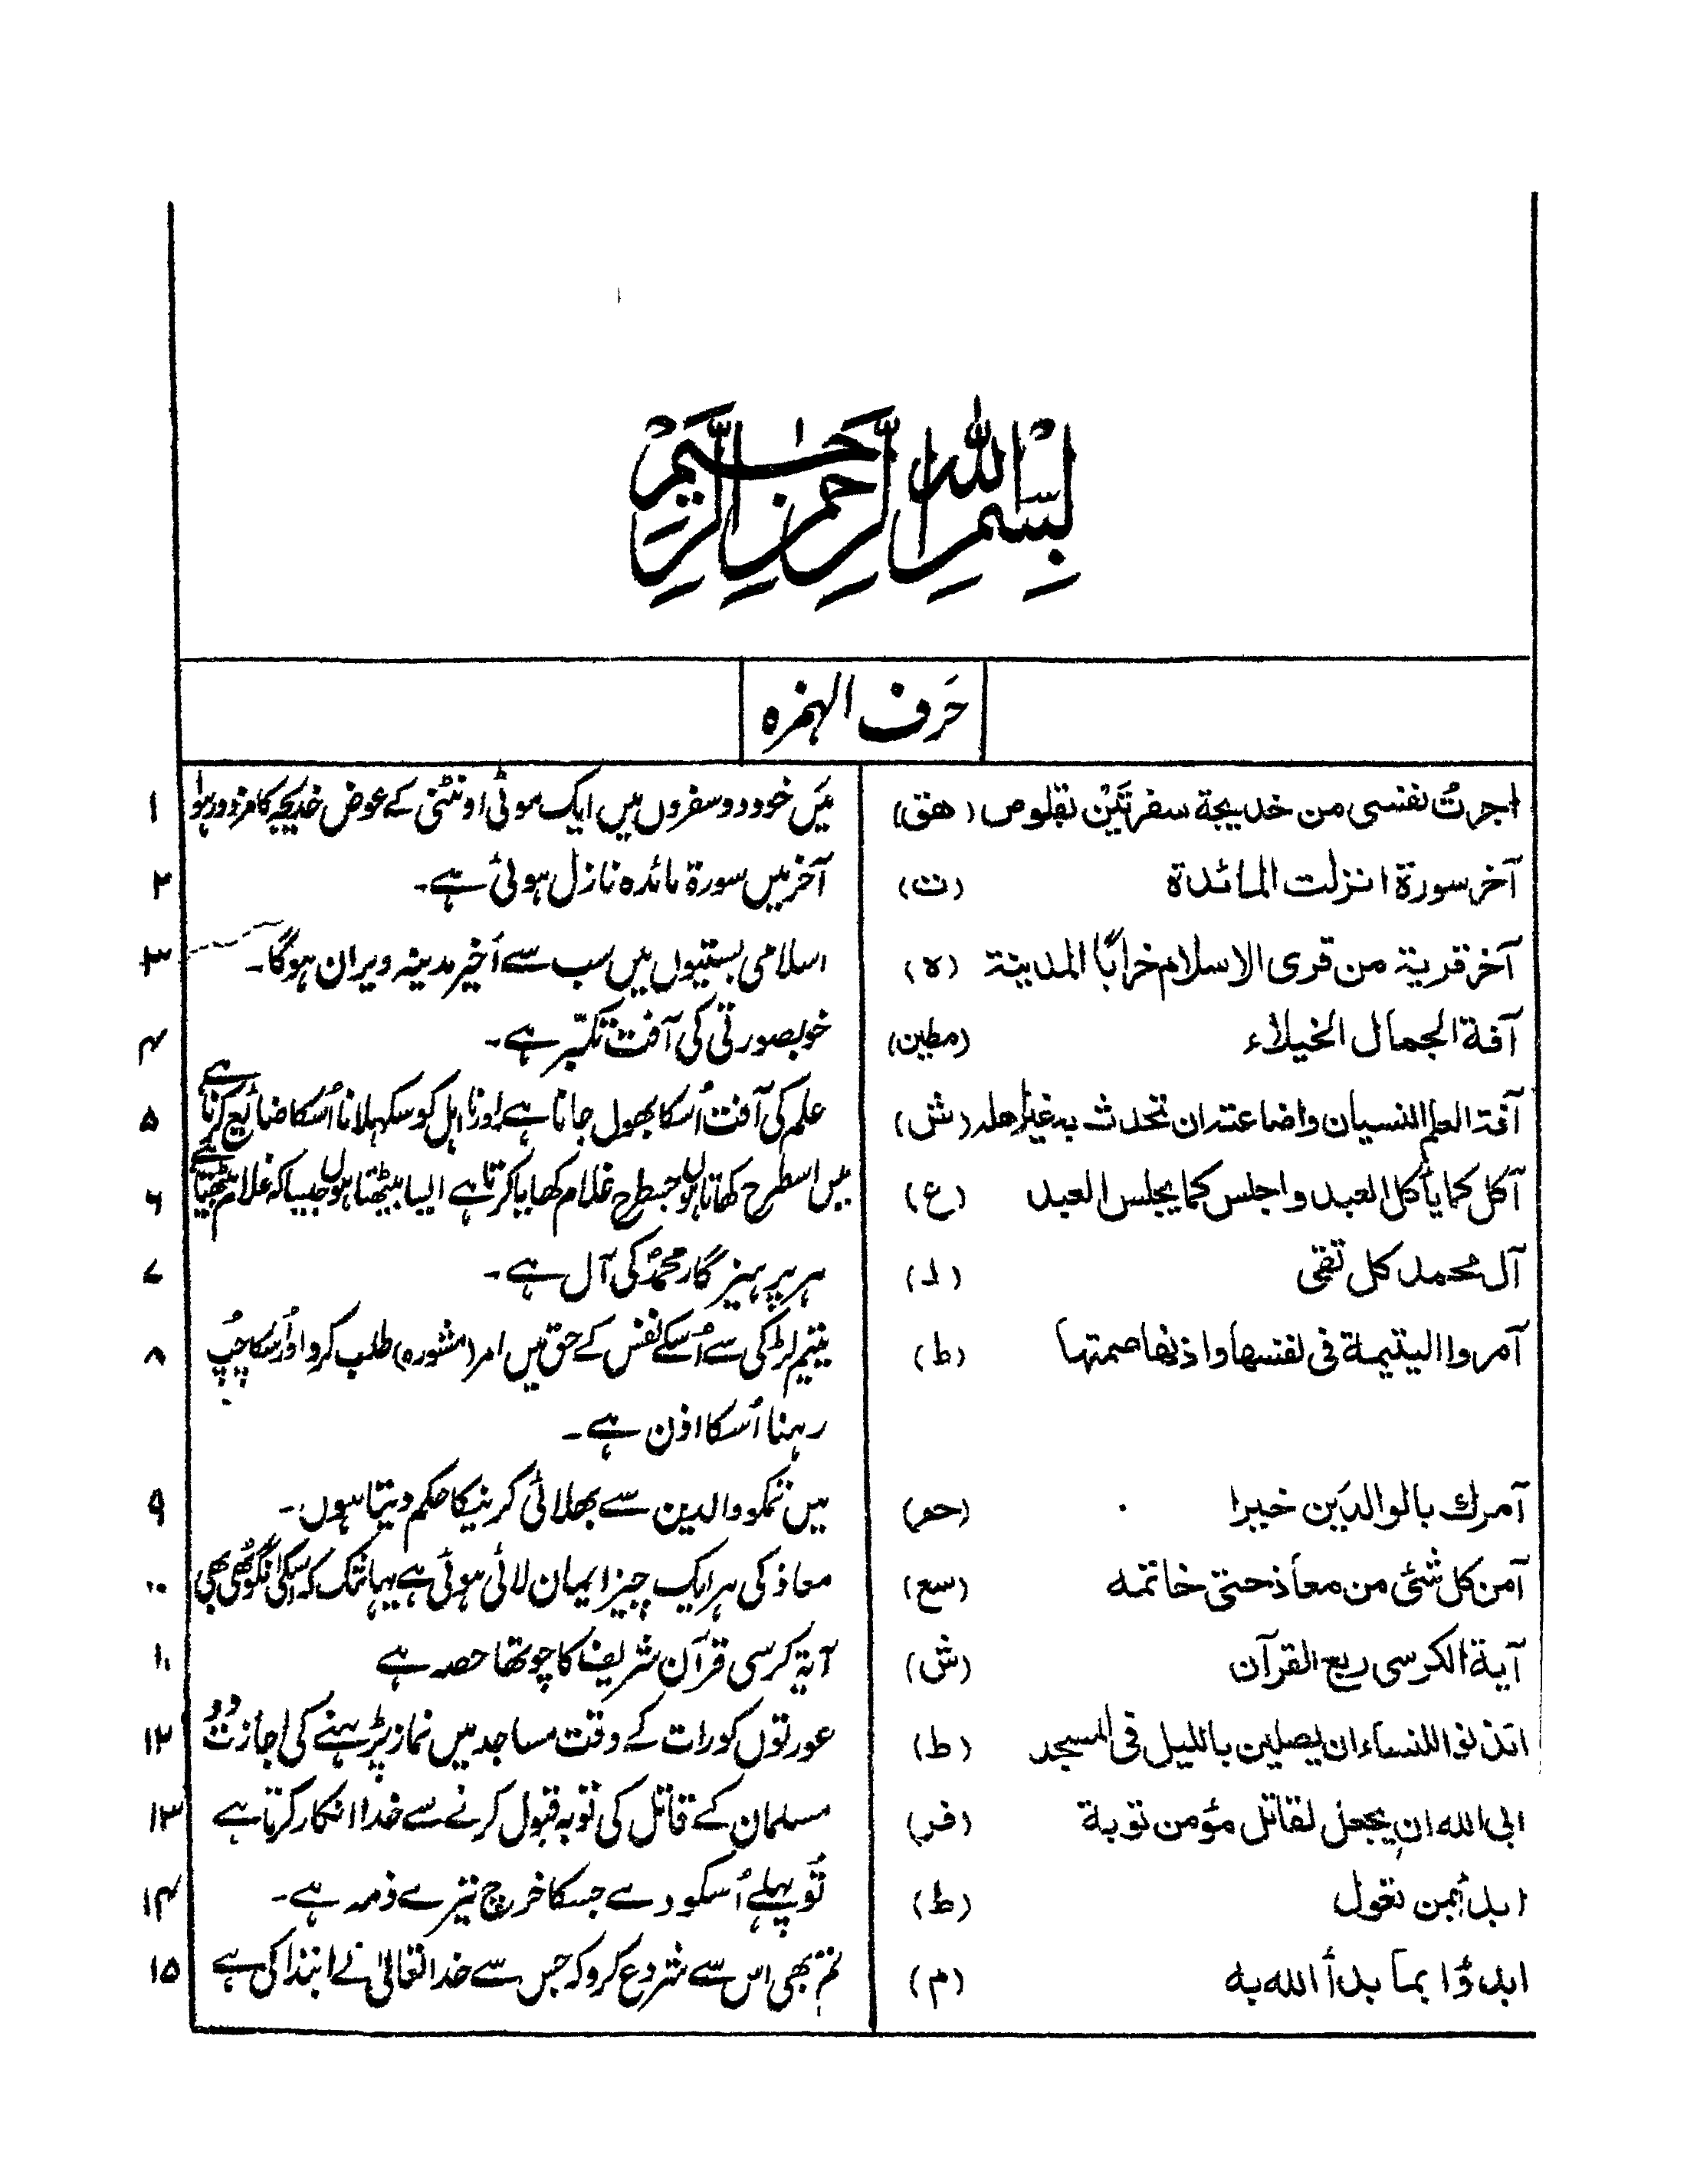 بِسْمِ اللهِ الرَّحْمٰنِ الرَّحِيْمِ
حَرف الہمزہ
اجرتُ نفسی من خدیجة سفرتَیْن بقلوص (هق) مَیں خود دو سفروں میں ایک موٹی اونٹنی کے عوض خدیجہ کا مزدور ہوا ۱
آخر سورة انزلت المائدة (ت) آخر میں سورۃ مائدہ نازل ہوئی ہے۔ ۲
آخر قریة من قری الاسلام خرابًا المدینة (ہ) اسلامی بستیوں میں سب سے اخیر مدینہ ویران ہوگا۔ ۳
آفة الجمال الخیلاء (مطین) خوبصورتی کی آفت تکبّر ہے۔ ۴
آفة العلم النسیان واضاعته ان تحدث به غیر اهله (ش) علم کی آفت اُسکا بھول جانا ہے اور نا اہل کو سکہلانا اُسکا ضائع کرنا ہے ۵
آکل کما یأکل العبد واجلس کما یجلس العبد (ع) میں اسطرح کھاتا ہوں جسطرح غلام کھایا کرتا ہے ایسا بیٹھتا ہوں جیسا کہ غلام بیٹھتا ہے ۶
آل محمد کل تقی (لد) ہر پرہیز گار محمدؐ کی آل ہے۔ ۷
آمروا الیتیمة فی نفسها واذنها صمتها (ط) یتیم لڑکی سے اُسکے نفس کے حق میں امر (مشورہ) طلب کرو اور اُسکا چُپ ۸
رہنا اُسکا اذن ہے۔
آمرك بالوالدَین خیرا (حم) میں تمکو والدین سے بھلائی کرنیکا حکم دیتا ہوں۔ ۹
آمن کل شئ من معاذ حتی خاتمه (سع) معاذ کی ہر ایک چیز ایمان لائی ہوئی ہے یہانتک کہ اسکی انگوٹھی بھی ۱۰
آیة الکرسی ربع القرآن (ش) آیۃ کرسی قرآن شریف کا چوتھا حصہ ہے ۱۱
ائذنوا للنساء ان یصلین باللیل فی المسجد (ط) عورتوں کو رات کے وقت مساجد میں نماز پڑہنے کی اجازت دو ۱۲
ابی الله ان یجعل لقاتل مؤمن توبة (فر) مسلمان کے قاتل کی توبہ قبول کرنے سے خدا انکار کرتا ہے ۱۳
ابدأ بمن تعول (ط) تُو پہلے اُسکو دے جسکا خرچ تیرے ذمہ ہے۔ ۱۴
ابدؤا بما بدأ الله به (م) تم بھی اس سے شروع کرو کہ جس سے خدا تعالیٰ نے ابتدا کی ہے ۱۵